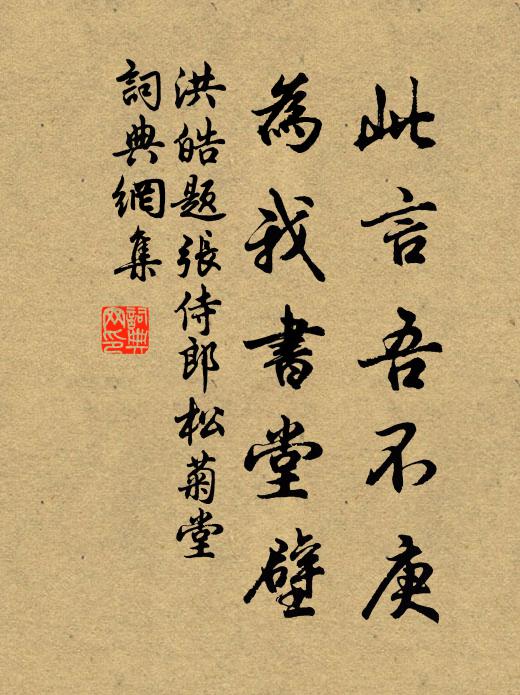 此言吾不庚
為我書堂壁
洪皓題張侍郎松菊堂
詞典網集
詞典
网印